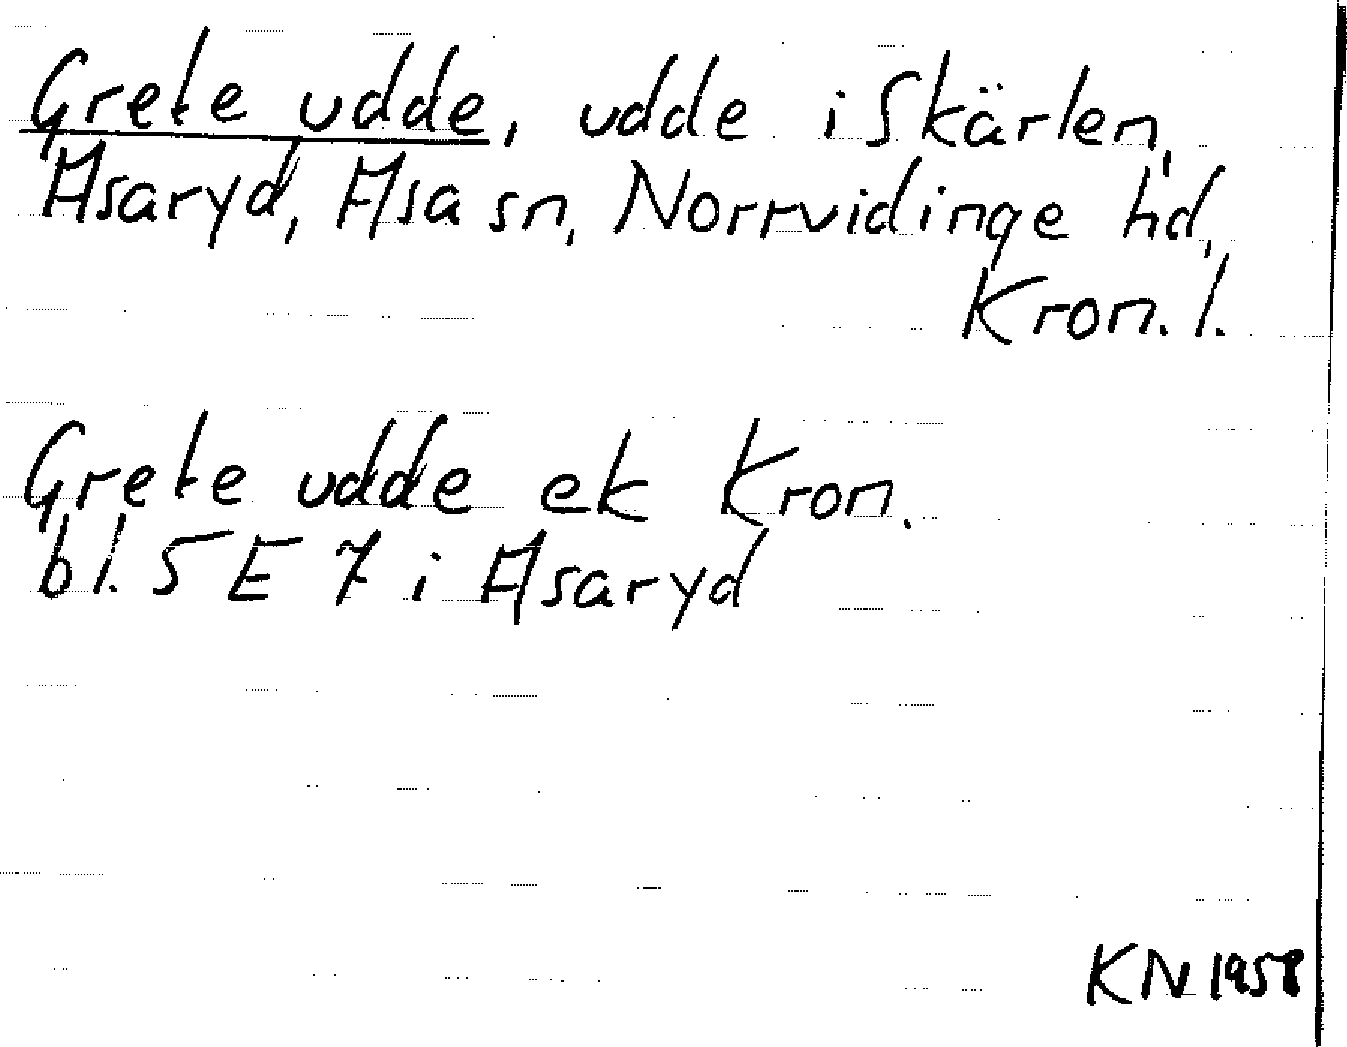 Grete udde, udde i Skärlen,
Asaryd, Asa sn, Norrvidinge hd,
Kron. l.
Grete udde ek Kron.
bl. 5 E 7 i Asaryd
KN 1958